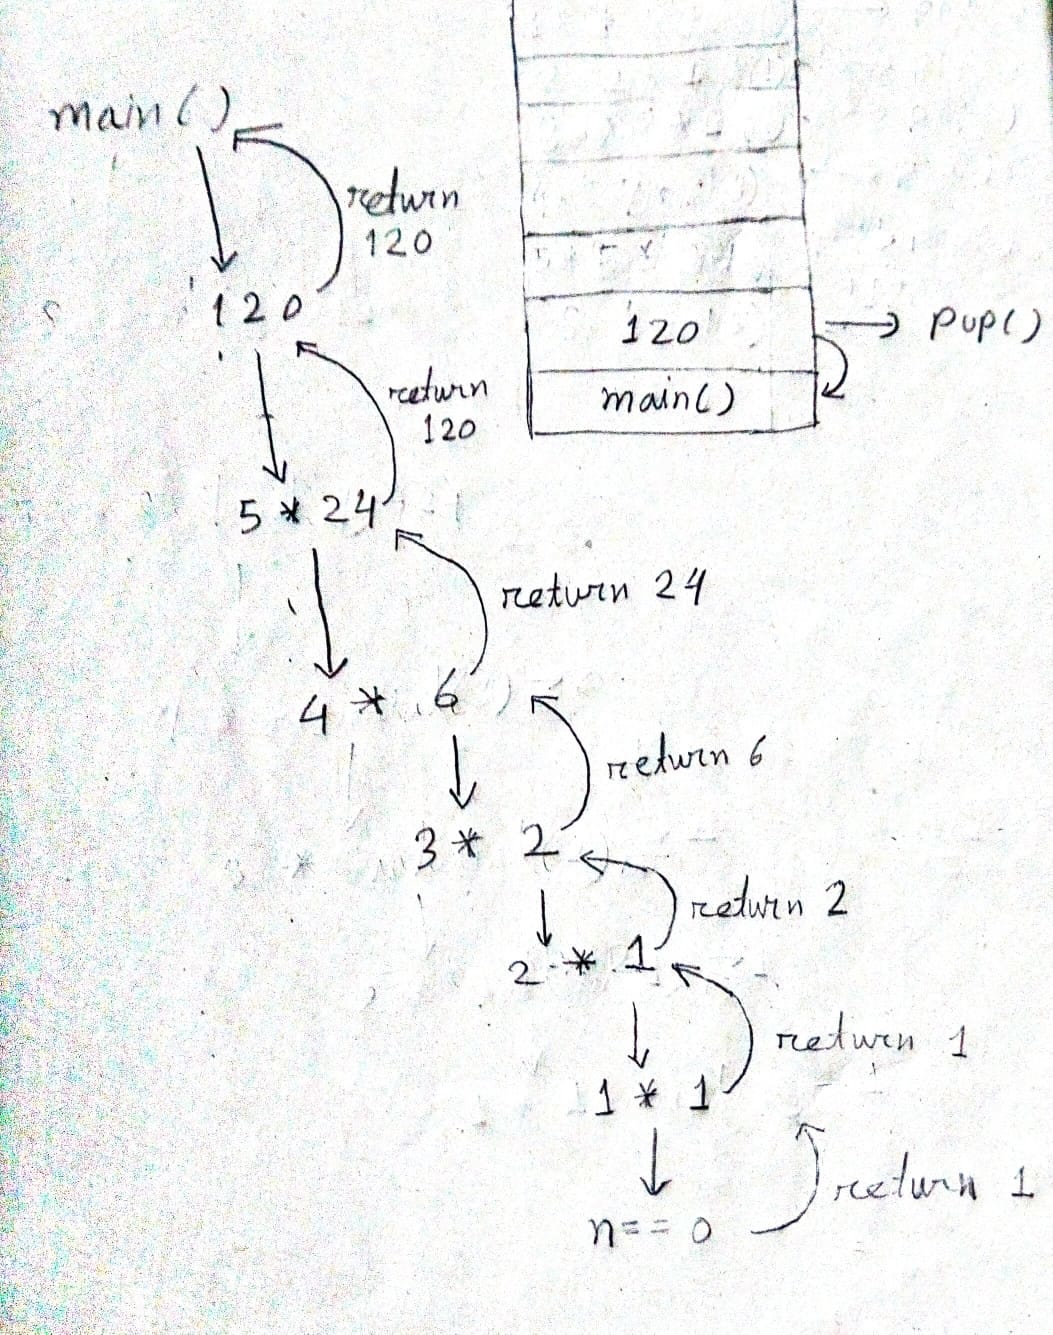 main()
return
120
120
return
120
5 * 24
return 24
4 * 6
return 6
3 * 2
return 2
2 * 1
return 1
1 * 1
return 1
n == 0
120 → pup()
main()